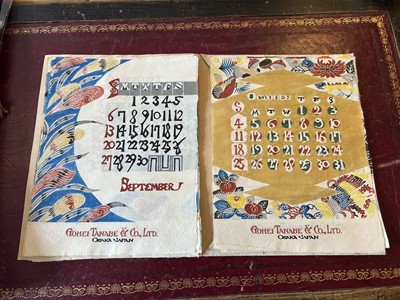 S M T W T F S
1 2 3 4 5
6 7 8 9 10 11 12
13 14 15 16 17 18 19
20 21 22 23 24 25 26
27 28 29 30
SEPTEMBER
GOHEI TANABE & CO., LTD.
OSAKA JAPAN
T F S
S M T W 1 2 3
4 5 6 7 8 9 10
11 12 13 14 15 16 17
18 19 20 21 22 23 24
25 26 27 28 29 30 31
GOHEI TANABE & CO., LTD.
OSAKA JAPAN